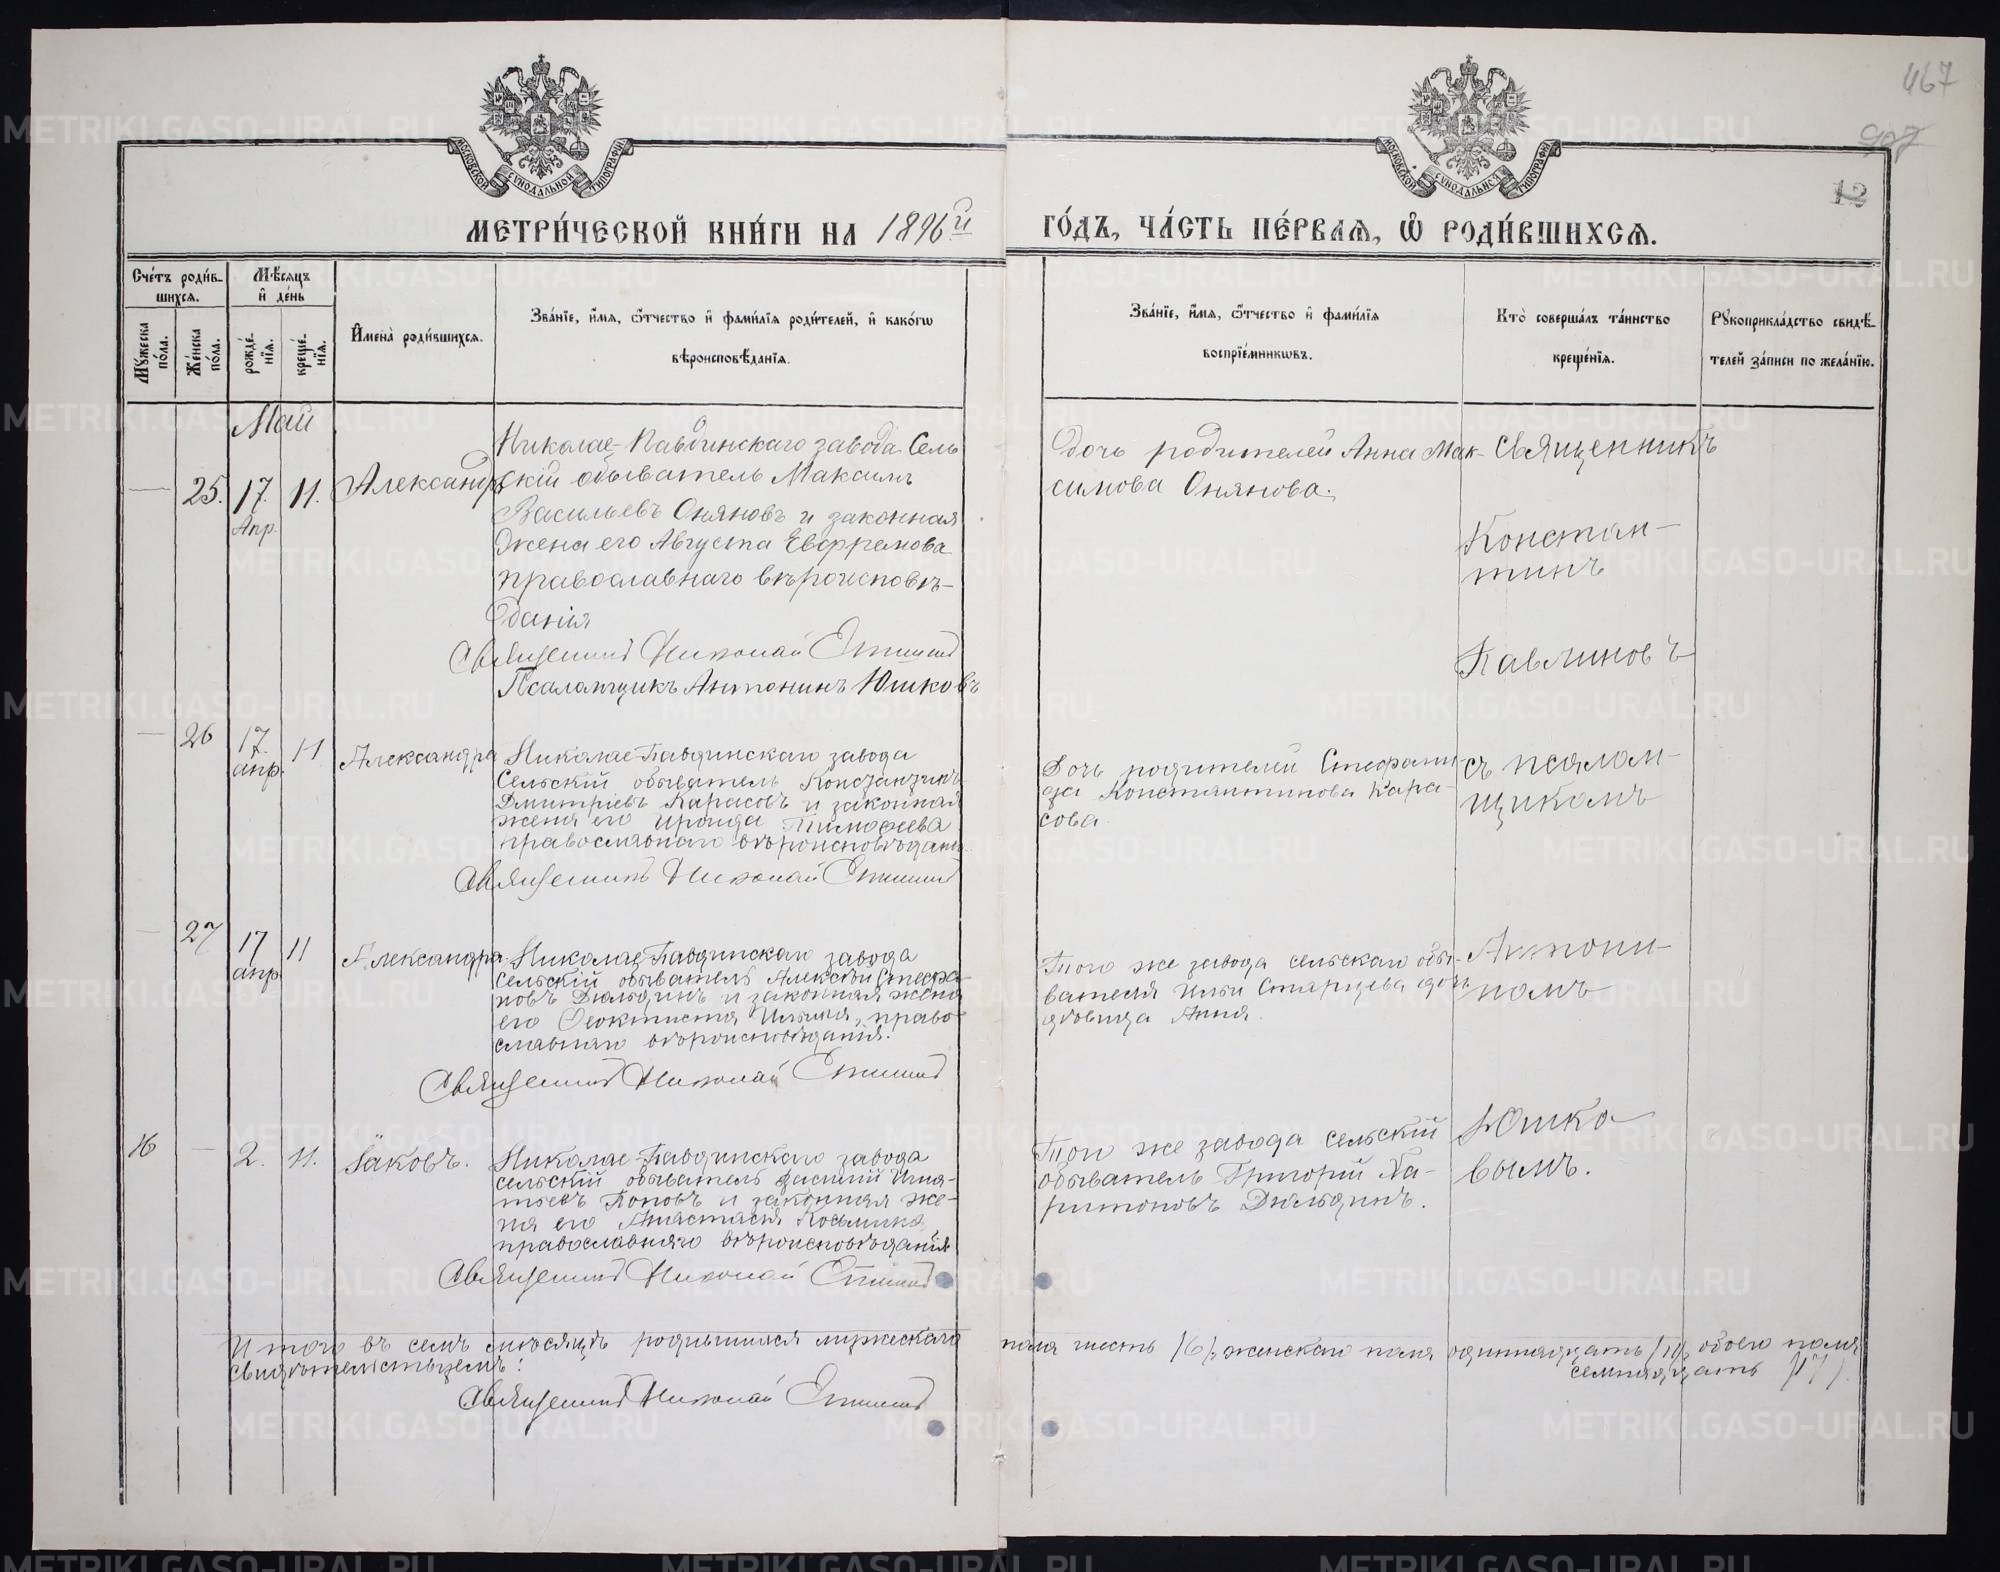 467
907
12
МОСКОВСКОЙ СѴНОДАЛЬНОЙ ТИПОГРАФІИ
МОСКОВСКОЙ СѴНОДАЛЬНОЙ ТИПОГРАФІИ
МЕТРИ́ЧЕСКОЙ КНИ́ГИ НА 1896й
ГО́ДЪ, ЧА́СТЬ ПЕ́РВАѦ, Ѽ РОДИ́ВШИХСѦ.
Сче́тъ роди́в-
шихсѧ.
Мꙋ́жеска по́ла.
Же́нска по́ла.
Мѣ́сѧцъ
и҆ де́нь
рожде́-
нїѧ.
креще́-
нїѧ.
И҆мена̀ роди́вшихсѧ.
Зва́нїе, и҆́мѧ, ѻ҆́тчество и҆ фами́лїѧ роди́телей, и҆ како́гѡ
вѣроисповѣ́данїѧ.
Зва́нїе, и҆́мѧ, ѻ҆́тчество и҆ фами́лїѧ
воспрїе́мникѡвъ.
Кто̀ соверша́лъ та́инство
креще́нїѧ.
Рꙋкоприкла́дство свидѣ́-
телей за́писи по жела́нїю.
Май
— 25. 17. Апр. 11. Александра
Николае-Павдинскаго завода Сель
скій обыватель Максимъ
Васильевъ Оняновъ и законная
жена его Августа Евфремова
православнаго вѣроисповѣ-
данія
Священникъ Николай
Псаломщикъ Антонинъ Юшковъ
Дочь родителей Анна Мак-
симова Онянова.
Священникъ
Констан-
тинъ
Павлиновъ
— 26 17 апр. 11 Александра
Николае-Павдинскаго завода
Сельскій обыватель Константинъ
Дмитріевъ Карасовъ и законная
жена его Ираида Тимофеева
православнаго вѣроисповѣдани
Священникъ Николай
Дочь родителей Стефани-
да Константинова Кара-
сова.
съ псалом-
щикомъ
— 27 17 апр 11 Александра
Николае-Павдинскаго завода
сельскій обыватель Алексѣй Стефа-
новъ Дюльдинъ и законная жена
его Феоктиста Ильина, право-
славнаго вѣроисповѣданія.
Священникъ Николай
Того же завода сельскаго обы-
вателя Ильи Старцева дочь
дѣвица Анна.
Антони-
номъ
16 — 2. 11. Іаковъ.
Николае-Павдинскаго завода
сельскій обыватель Василій Игна-
тьевъ Поповъ и законная же-
на его Анастасія Козьмина,
православнаго вѣроисповѣданія
Священникъ Николай
Того же завода сельскій
обыватель Григорій Ха-
ритоновъ Дюльдинъ.
Юшко-
вымъ.
Итого въ семъ мѣсяцѣ родившихся мужескаго
пола шесть /6/, женскаго пола одиннадцать /11/, обоего пола
семнадцать /17/.
свидѣтельствуемъ:
Священникъ Николай
METRIKI.GASO-URAL.RU